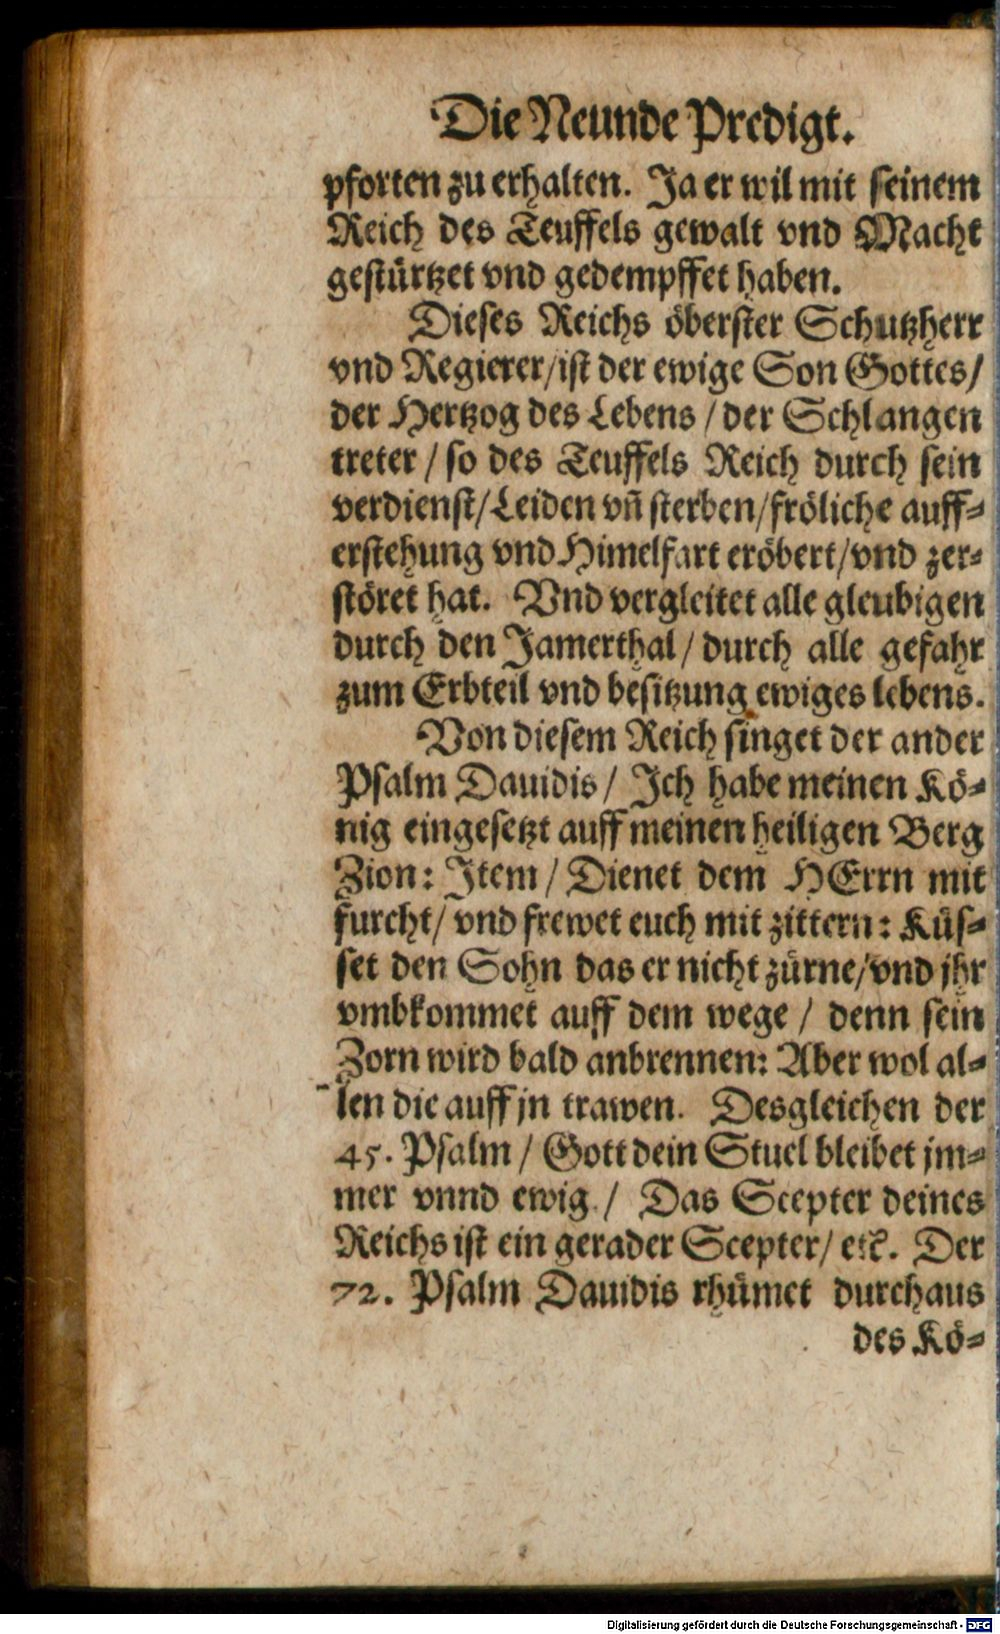 Die Neunde Predigt.
pforten zu erhalten. Ja er wil mit seinem
Reich des Teuffels gewalt vnd Macht
gestürtzet vnd gedempffet haben.
Dieses Reichs öberster Schutzherr
vnd Regierer/ist der ewige Son Gottes/
der Hertzog des Lebens / der Schlangen
treter / so des Teuffels Reich durch sein
verdienst/Leiden vñ sterben/fröliche auff-
erstehung vnd Himelfart eröbert/vnd zer-
störet hat. Vnd vergleitet alle gleubigen
durch den Jamerthal / durch alle gefahr
zum Erbteil vnd besitzung ewiges lebens.
Von diesem Reich singet der ander
Psalm Dauidis / Ich habe meinen Kö-
nig eingesetzt auff meinen heiligen Berg
Zion: Item / Dienet dem HErrn mit
furcht/ vnd frewet euch mit zittern: Küs-
set den Sohn das er nicht zürne/vnd jhr
vmbkommet auff dem wege / denn sein
Zorn wird bald anbrennen: Aber wol al-
len die auff jn trawen. Desgleichen der
45. Psalm / Gott dein Stuel bleibet jm-
mer vnnd ewig / Das Scepter deines
Reichs ist ein gerader Scepter/ etc. Der
72. Psalm Dauidis rhümet durchaus
des Kö-
Digitalisierung gefördert durch die Deutsche Forschungsgemeinschaft - DFG